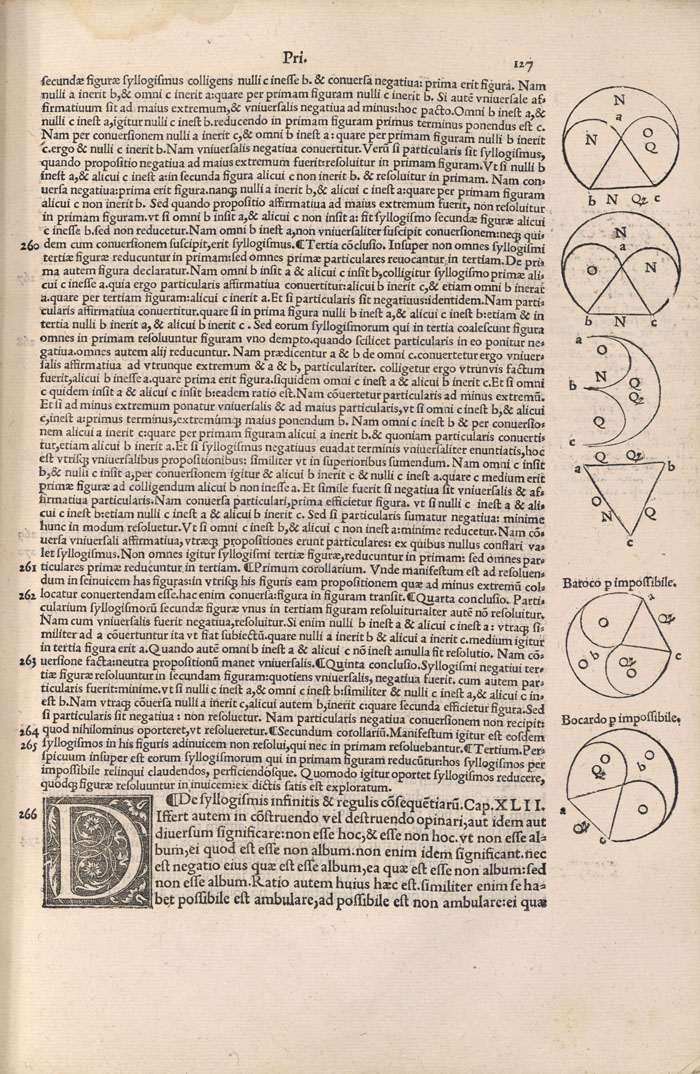 Pri. 127
secundæ figuræ syllogismus colligens nulli c inesse b. & conuersa negatiua: prima erit figura. Nam
nulli a inerit b,& omni c inerit a:quare per primam figuram nulli c inerit b. Si autē vniuersale af-
firmatiuum sit ad maius extremum,& vniuersalis negatiua ad minus:hoc pacto.Omni b inest a,&
nulli c inest a,igitur nulli c inest b.reducendo in primam figuram primus terminus ponendus est c.
Nam per conuersionem nulli a inerit c,& omni b inest a: quare per primam figuram nulli b inerit
c.ergo & nulli c inerit b.Nam vniuersalis negatiua conuertitur. Verū si particularis sit syllogismus,
quando propositio negatiua ad maius extremum fuerit:resoluitur in primam figuram.Vt si nulli b
inest a,& alicui c inest a:in secunda figura alicui c non inerit b. & resoluitur in primam. Nam con-
uersa negatiua:prima erit figura.nanq; nulli a inerit b,& alicui c inest a:quare per primam figuram
alicui c non inerit b. Sed quando propositio affirmatiua ad maius extremum fuerit, non resoluitur
in primam figuram.vt si omni b insit a,& alicui c non insit a: fit syllogismo secundæ figuræ alicui
c inesse b.sed non reducetur.Nam omni b inest a,non vniuersaliter suscipit conuersionem:neq; qui-
260 dem cum conuersionem suscipit,erit syllogismus. ¶Tertia cōclusio. Insuper non omnes syllogismi
tertiæ figuræ reducuntur in primam:sed omnes primæ particulares reuocantur in tertiam.De pri-
ma autem figura declaratur.Nam omni b insit a & alicui c insit b,colligitur syllogismo primæ ali-
cui c inesse a.quia ergo particularis affirmatiua conuertitur:alicui b inerit c,& etiam omni b inerat
a.quare per tertiam figuram:alicui c inerit a.Et si particularis sit negatiuus:identidem.Nam parti-
cularis affirmatiua conuertitur.quare si in prima figura nulli b inest a,& alicui c inest b:etiam & in
tertia nulli b inerit a, & alicui b inerit c . Sed eorum syllogismorum qui in tertia coalescunt figura
omnes in primam resoluuntur figuram vno dempto.quando scilicet particularis in eo ponitur ne-
gatiua.omnes autem alij reducuntur. Nam prædicentur a & b de omni c.conuertetur ergo vniuer-
salis affirmatiua ad vtrunque extremum & a & b, particulariter. colligetur ergo vtrunvis factum
fuerit,alicui b inesse a.quare prima erit figura.siquidem omni c inest a & alicui b inerit c.Et si omni
c quidem insit a & alicui c insit b:eadem ratio est.Nam cōuertetur particularis ad minus extremū.
Et si ad minus extremum ponatur vniuersalis & ad maius particularis,vt si omni c inest b,& alicui
c,inest a:primus terminus,extremūmq; maius ponendum b. Nam omni c inest b & per conuersio-
nem alicui a inerit c:quare per primam figuram alicui a inerit b.& quoniam particularis conuerti-
tur,etiam alicui b inerit a.Et si syllogismus negatiuus euadat terminis vniuersaliter enuntiatis,hoc
est vtrisq; vniuersalibus propositionibus: similiter vt in superioribus sumendum. Nam omni c insit
b,& nulli c insit a;per conuersionem igitur & alicui b inerit c & nulli c inest a.quare c medium erit
primæ figuræ ad colligendum alicui b non inesse a. Et simile fuerit si negatiua sit vniuersalis & af-
firmatiua particularis.Nam conuersa particulari,prima efficietur figura. vt si nulli c inest a & ali-
cui c inest b:etiam nulli c inest a & alicui b inerit c. Sed si particularis sumatur negatiua: minime
hunc in modum resoluetur.Vt si omni c inest b,& alicui c non inest a:minime reducetur. Nam cō-
uersa vniuersali affirmatiua,vtræq; propositiones erunt particulares: ex quibus nullus constari va-
let syllogismus. Non omnes igitur syllogismi tertiæ figuræ,reducuntur in primam: sed omnes par-
261 ticulares primæ reducuntur in tertiam. ¶Primum corollarium. Vnde manifestum est ad resoluen-
dum in seinuicem has figuras:in vtrisq; his figuris eam propositionem quæ ad minus extremū col-
262 locatur conuertendam esse.hac enim conuersa:figura in figuram transit. ¶Quarta conclusio. Parti-
cularium syllogismorū secundæ figuræ vnus in tertiam figuram resoluitur:alter autē nō resoluitur.
Nam cum vniuersalis fuerit negatiua,resoluitur.Si enim nulli b inest a & alicui c inest a: vtraq; si-
militer ad a cōuertuntur ita vt fiat subiectū.quare nulli a inerit b & alicui a inerit c.medium igitur
in tertia figura erit a.Quando autē omni b inest a & alicui c nō inest a:nulla fit resolutio. Nam cō-
263 uersione facta:neutra propositionū manet vniuersalis.¶Quinta conclusio.Syllogismi negatiui ter-
tiæ figuræ resoluuntur in secundam figuram:quotiens vniuersalis, negatiua fuerit. cum autem par-
ticularis fuerit:minime.vt si nulli c inest a,& omni c inest b:similiter & nulli c inest a,& alicui c in-
est b.Nam vtraq; cōuersa nulli a inerit c,alicui autem b,inerit c:quare secunda efficietur figura.Sed
si particularis sit negatiua : non resoluetur. Nam particularis negatiua conuersionem non recipit:
264 quod nihilominus oporteret,vt resolueretur. ¶Secundum corollariū.Manifestum igitur est eosdem
265 syllogismos in his figuris adinuicem non resolui,qui nec in primam resoluebantur. ¶Tertium.Per-
spicuum insuper est eorum syllogismorum qui in primam figuram reducūtur:hos syllogismos per
impossibile relinqui claudendos, perficiendósque. Quomodo igitur oportet syllogismos reducere,
quódq; figuræ resoluuntur in inuicem:ex dictis satis est exploratum.
¶De syllogismis infinitis & regulis cōsequētiarū. Cap.XLII.
266 DIffert autem in cōstruendo vel destruendo opinari,aut idem aut
diuersum significare:non esse hoc,& esse non hoc.vt non esse al-
bum,ei quod est esse non album.non enim idem significant.nec
est negatio eius quæ est esse album,ea quæ est esse non album:sed
non esse album.Ratio autem huius hæc est.similiter enim se ha-
bet possibile est ambulare,ad possibile est non ambulare:ei quæ
N
a
N O
Q
b N Q c
N
a
O N
b N c
a
O
N Q
b Q
Q
c
a Q Q b
O
N Q
c
Baroco p impossibile.
a
O Q
O b Q c
Bocardo p impossibile.
Q O b O
a O
Q c